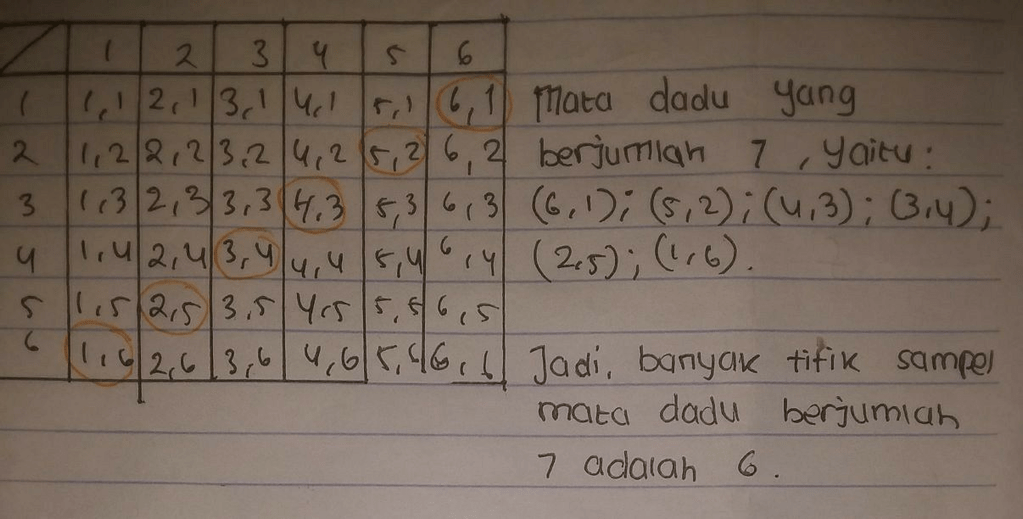 1 2 3 4 5 6
1 1,1 2,1 3,1 4,1 5,1 6,1
2 1,2 2,2 3,2 4,2 5,2 6,2
3 1,3 2,3 3,3 4,3 5,3 6,3
4 1,4 2,4 3,4 4,4 5,4 6,4
5 1,5 2,5 3,5 4,5 5,5 6,5
6 1,6 2,6 3,6 4,6 5,6 6,6
Mata dadu yang
berjumlah 7, yaitu:
(6,1); (5,2); (4,3); (3,4);
(2,5); (1,6).
Jadi, banyak titik sampel
mata dadu berjumlah
7 adalah 6.